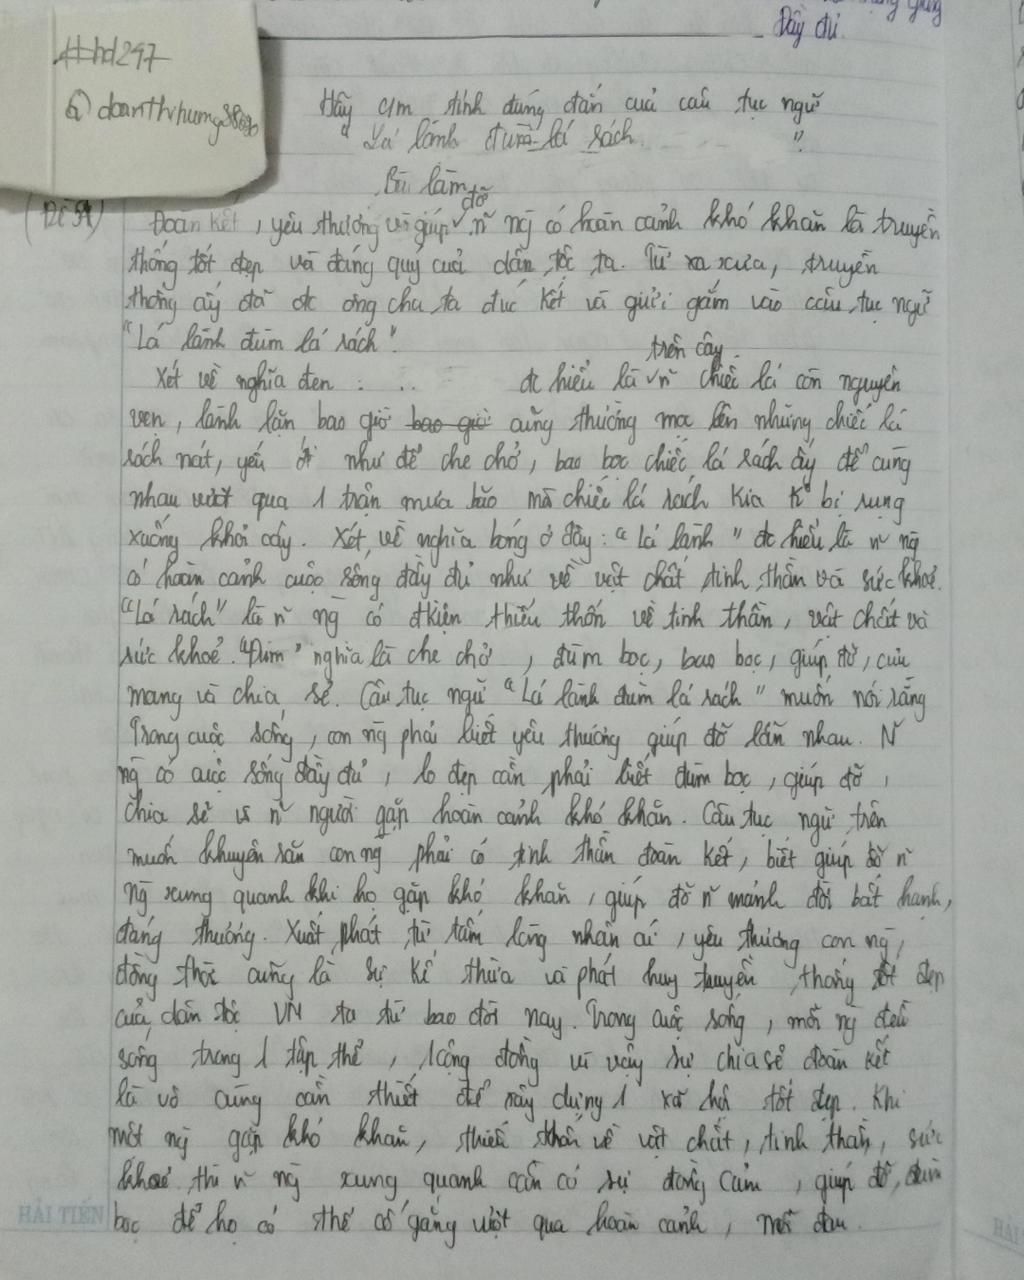 Đầy đủ
#hd247
Hãy c/m tính đúng đắn cuả câu tục ngữ
"Lá lành đùm lá rách"
Bài làm
(Đề
đỡ
Đoàn kết, yêu thương và giúp n~ ng̀ có hoàn cảnh khó khăn là truyền
thống tốt đẹp và đáng quý cuả dân tộc ta. Từ xa xưa, truyền
thống ấy đã đc ông cha ta đúc kết và gửi gắm vào câu tục ngữ
"Lá lành đùm lá rách".
trên cây.
Xét về nghĩa đen : .. đc hiểu là n~ chiếc lá còn nguyên
vẹn, lành lặn bao giờ bao giờ cũng thường mọc lên những chiếc lá
rách nát, yếu ớt như để che chở, bao bọc chiếc lá rách ấy để cùng
nhau vượt qua 1 trận mưa bão mà chiếc lá rách kia k0 bị rụng
xuống khỏi cây. Xét về nghĩa bóng ở đây: "Lá lành" đc hiểu là n~ ng̀
có hoàn cảnh cuộc sống đầy đủ như về vật chất tinh thần và sức khoẻ.
"Lá rách" là n~ ng̀ có đkiện thiếu thốn về tinh thần, vật chất và
sức khoẻ. "Đùm" nghĩa là che chở, đùm bọc, bao bọc, giúp đỡ, cưu
mang và chia sẻ. Câu tục ngữ "Lá lành đùm lá rách" muốn nói rằng
Trong cuộc sống, con ng̀ phải biết yêu thương giúp đỡ lẫn nhau. N~
ng̀ có cuộc sống đầy đủ, tốt đẹp cần phải biết đùm bọc, giúp đỡ,
chia sẻ vs n~ người gặp hoàn cảnh khó khăn. Câu tục ngữ trên
muốn khuyên răn con ng̀ phải có tinh thần đoàn kết, biết giúp đỡ n~
ng̀ xung quanh khi họ gặp khó khăn, giúp đỡ n~ mảnh đời bất hạnh,
đáng thương. Xuất phát từ tấm lòng nhân ái, yêu thương con ng̀,
đồng thời cũng là sự kế thừa và phát huy truyền thống tốt đẹp
cuả dân tộc VN ta từ bao đời nay. Trong cuộc sống, mỗi ng̀ đều
sống trong 1 tập thể, 1 cộng đồng vì vậy sự chia sẻ đoàn kết
là vô cùng cần thiết để xây dựng 1 xã hội tốt đẹp. Khi
một ng̀ gặp khó khăn, thiếu thốn về vật chất, tinh thần, sức
khoẻ thì n~ ng̀ xung quanh cần có sự đồng cảm, giúp đỡ, đùm
bọc để họ có thể cố gắng vượt qua hoàn cảnh, nỗi đau.
HẢI TIẾN